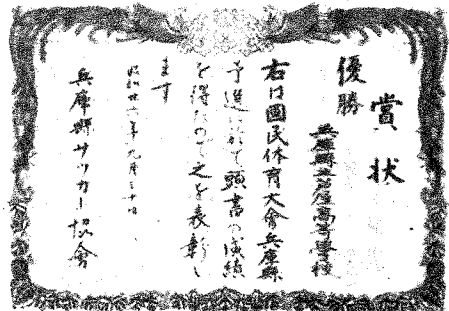 賞状
優勝
兵庫縣立芦屋高等學校
右は國民体育大會兵庫縣
予選に於て頭書の成績
を得たので之を表彰し
ます
昭和廿六年九月三十日
兵庫縣サッカー協會